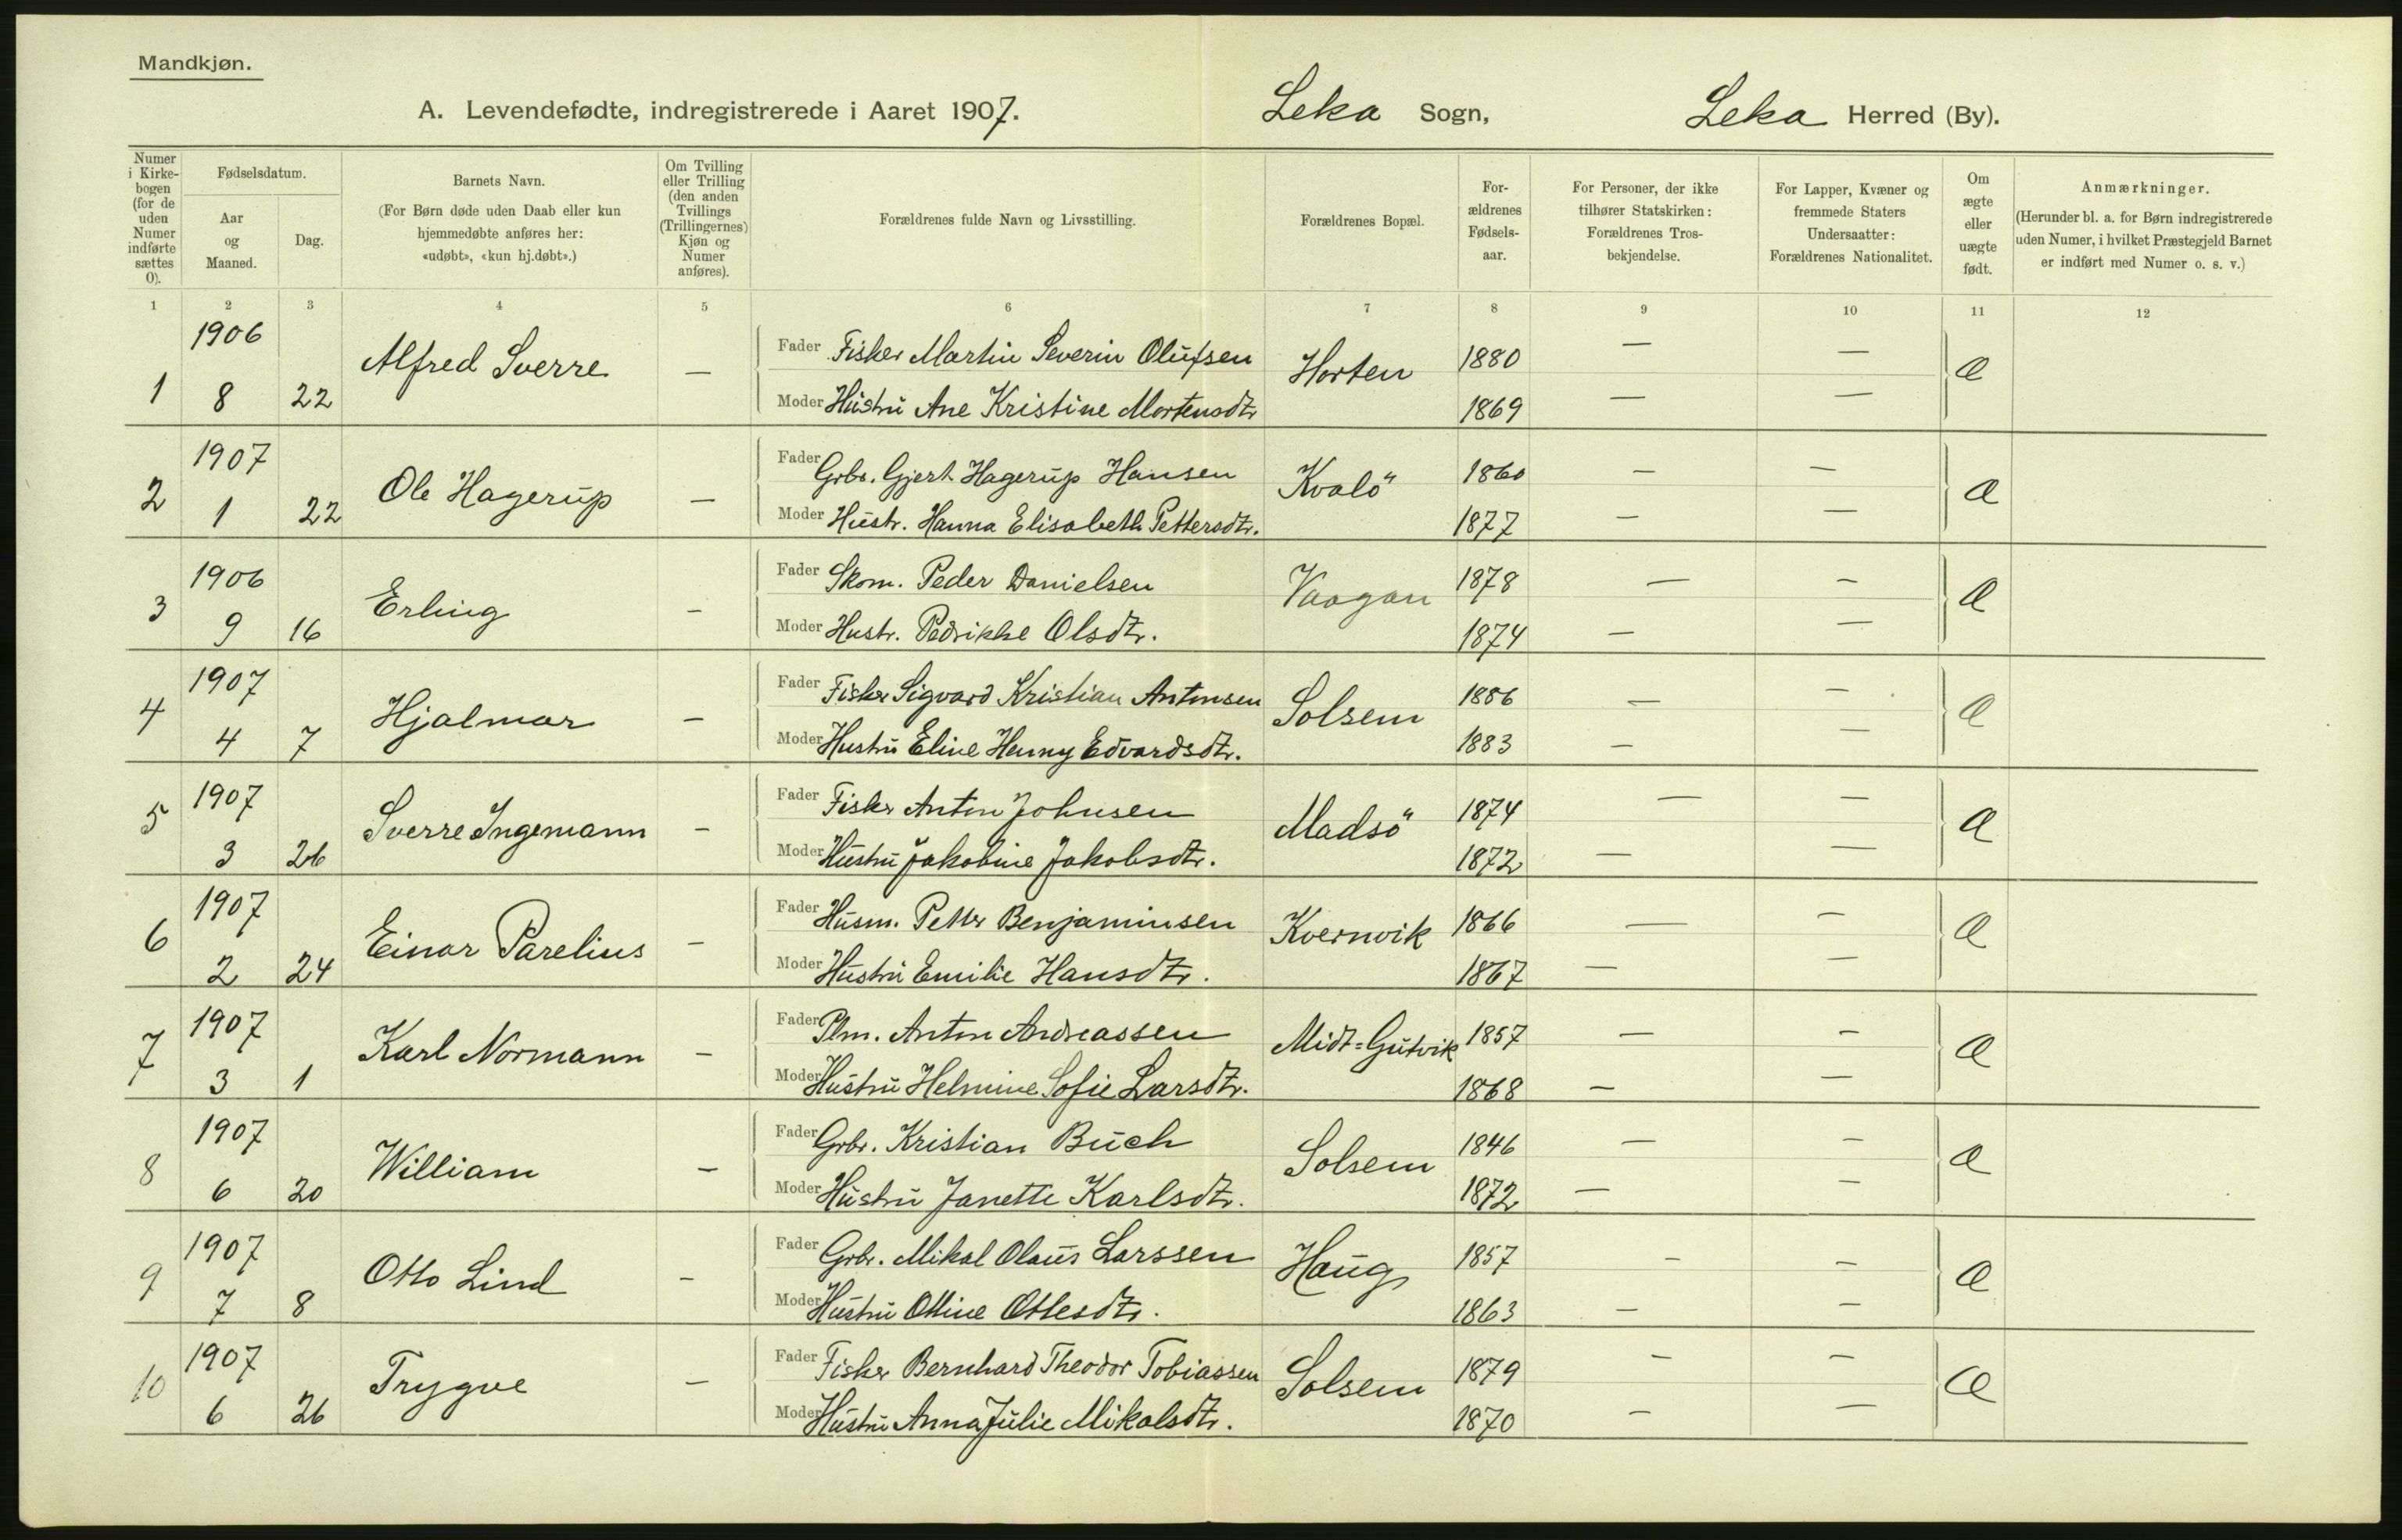 Mandkjøn.
A. Levendefødte, indregistrerede i Aaret 1907. Leka Sogn, Leka Herred (By).
Numer i Kirke-bogen (for de uden Numer indførte sættes 0).
Fødselsdatum.
Aar og Maaned.
Dag.
Barnets Navn.
(For Børn døde uden Daab eller kun hjemmedøbte anføres her: «udøbt», «kun hj.døbt».)
Om Tvilling eller Trilling (den anden Tvillings (Trillingernes) Kjøn og Numer anføres).
Forældrenes fulde Navn og Livsstilling.
Forældrenes Bopæl.
For-ældrenes Fødsels-aar.
For Personer, der ikke tilhører Statskirken: Forældrenes Tros-bekjendelse.
For Lapper, Kvæner og fremmede Staters Undersaatter: Forældrenes Nationalitet.
Om ægte eller uægte født.
Anmærkninger.
(Herunder bl. a. for Børn indregistrerede uden Numer, i hvilket Præstegjeld Barnet er indført med Numer o. s. v.)
1 2 3 4 5 6 7 8 9 10 11 12
1906 Fader Fisker Martin Severin Olufsen 1880 — —
1 8 22 Alfred Sverre — Horten Æ
Moder Hustru Ane Kristine Mortensdtr 1869 — —
1907 Fader Grbr. Gjert Hagerup Hansen 1860 — —
2 1 22 Ole Hagerup — Kvalö Æ
Moder Hustr. Hanna Elisabeth Pettersdtr. 1877 — —
1906 Fader Skom. Peder Danielsen 1878 — —
3 9 16 Erling — Vaagan Æ
Moder Hustr. Pedrikke Olsdtr. 1874 — —
1907 Fader Fisker Sigvard Kristian Antonsen 1886 — —
4 4 7 Hjalmar — Solsem Æ
Moder Hustru Eline Henny Edvardsdtr. 1883 — —
1907 Fader Fisker Anton Johnsen 1874 — —
5 3 26 Sverre Ingemann — Madsö Æ
Moder Hustru Jakobine Jakobsdtr. 1872 — —
1907 Fader Husm. Petter Benjaminsen 1866 — —
6 2 24 Einar Parelius — Kvernvik Æ
Moder Hustru Emilie Hansdtr. 1867 — —
1907 Fader Plm. Anton Andreassen 1857 — —
7 3 1 Karl Normann — Midt=Gutvik Æ
Moder Hustru Helmine Sofie Larsdtr. 1868 — —
1907 Fader Grbr. Kristian Buch 1846 — —
8 6 20 William — Solsem Æ
Moder Hustru Janette Karlsdtr. 1872 — —
1907 Fader Grbr. Mikal Olaus Larssen 1857 — —
9 7 8 Otto Lind — Haug Æ
Moder Hustru Ottine Ottesdtr. 1863 — —
1907 Fader Fisker Bernhard Theodor Tobiassen 1879 — —
10 6 26 Trygve — Solsem Æ
Moder Hustru Anna Julie Mikalsdtr. 1870 — —